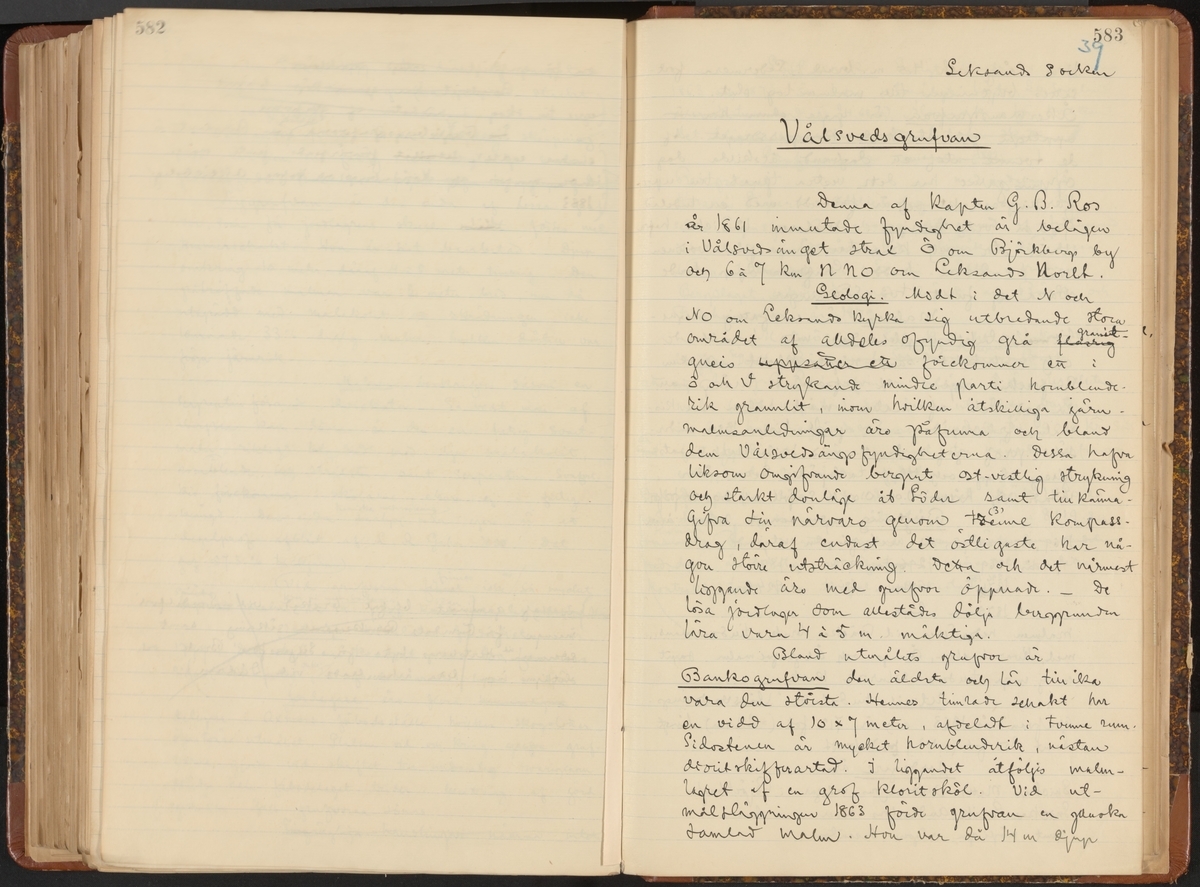 582
583
39
Leksands Socken
Vålsvedsgrufvan
Denna af Kapten G. B. Ros
år 1861 inmutade fyndighet är belägen
i Vålsvedsänget strax Ö om Björkbergs by
och 6 à 7 km NNO om Leksands Norlt.
Geologi. Midt i det N och
NO om Leksands kyrka sig utbredande stora
området af alldeles ofyndig grå granit-
gneis uppsätter ett förekommer ett i
Ö och V strykande mindre parti hornblende-
rik granulit, inom hvilken åtskilliga järn-
malmsanledningar äro påfunna och bland
dem Vålsvedsängsfyndigheterna. Dessa hafva
liksom omgifvande bergart ost-vestlig strykning
och starkt donläge åt Söder samt tillkänna-
gifva sin närvaro genom trenne (3) kompass-
drag, däraf endast det östligaste har nå-
gon större utsträckning. Detta och det närmast
liggande äro med grufvor öppnade. — De
lösa jordlager som allestädes dölja berggrunden
lära vara 4 à 5 m mäktiga.
Bland utmålets grufvor är
Banksgrufvan den äldsta och lär tillika
vara den största. Hennes timrade schakt har
en vidd af 10 x 7 meter, afdeladt i tvenne rum.
Sidostenen är mycket hornblenderik, nästan
dioritskifferartad. I liggandet åtföljes malm-
lagret af en grof kloritsköl. Vid ut-
målsläggningen 1863 förde grufvan en ganska
samlad malm. Hon var då 14 m djup